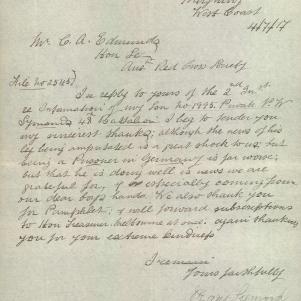 West Coast
4/7/17
Mr C. A. Edmunds
Hon Sec
Aust Red Cross Society
File no 2545
In reply to yours of the 2nd Inst
re Information of my son no 1495. Private
Symonds 48 Battalion I beg to tender you
my sincerest thanks, although the news of his
leg being amputated is a great shock to us; but
being a Prisoner in Germany is far worse,
but that he is doing well is news we are
grateful for, & especially coming from
our dear boys hands. We also thank you
for Pamphlet, & will forward subscriptions
to Hon Treasurer Melbourne at once. again thanking
you for your extreme kindness
I remain
Yours faithfully